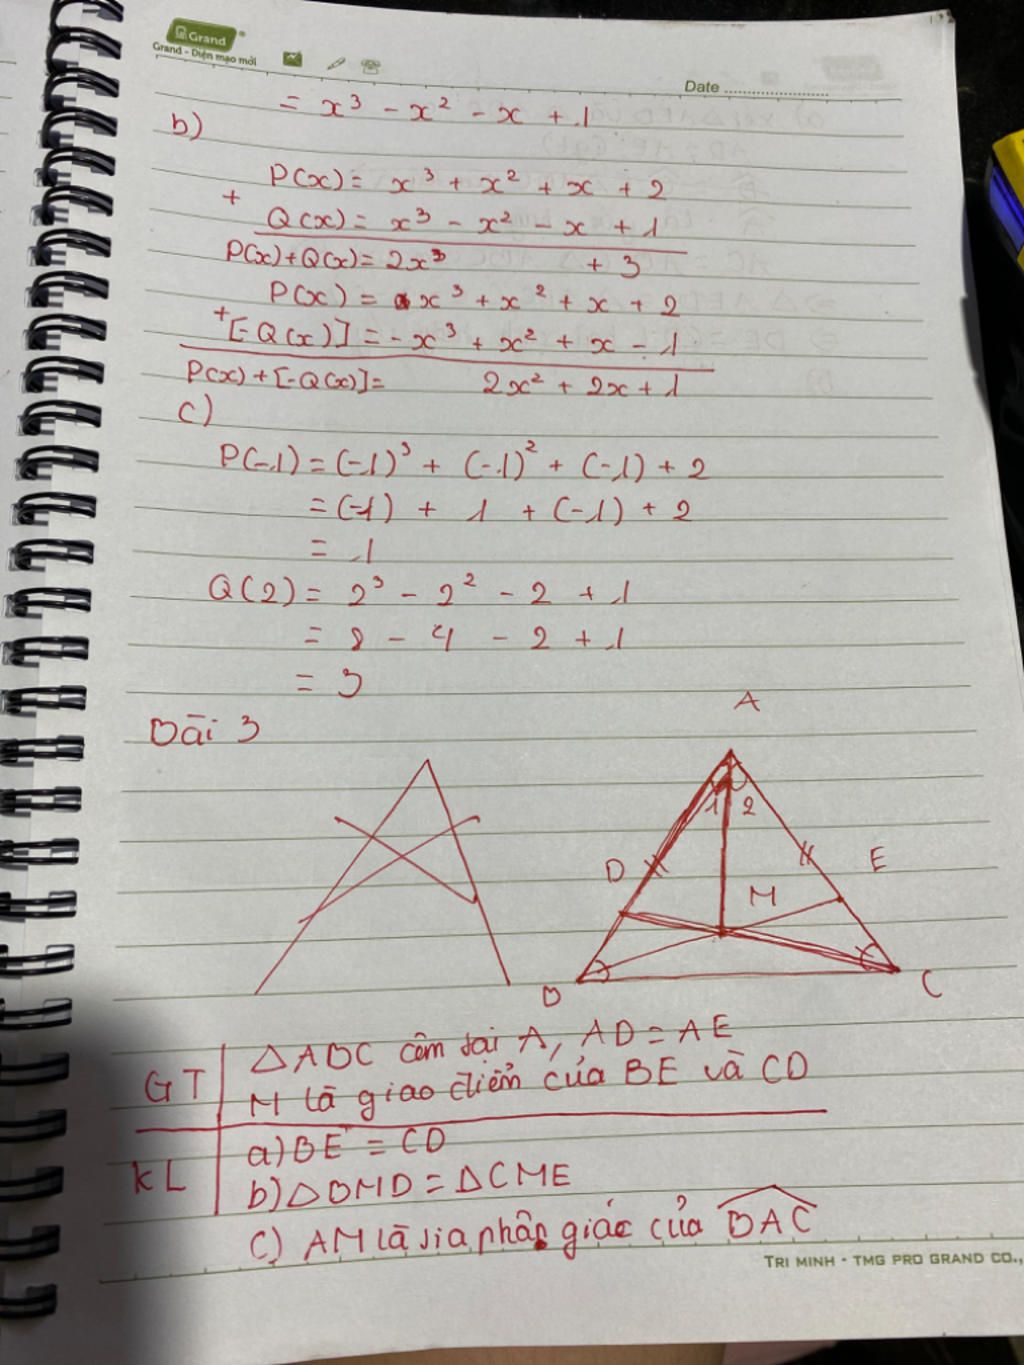 Grand
Grand - Diện mạo mới
Date
= x³ - x² - x + 1
b)
P(x) = x³ + x² + x + 2
+
Q(x) = x³ - x² - x + 1
P(x)+Q(x) = 2x³ + 3
P(x) = x³ + x² + x + 2
+[-Q(x)] = -x³ + x² + x - 1
P(x)+[-Q(x)] = 2x² + 2x + 1
c)
P(-1) = (-1)³ + (-1)² + (-1) + 2
= (-1) + 1 + (-1) + 2
= 1
Q(2) = 2³ - 2² - 2 + 1
= 8 - 4 - 2 + 1
= 3
Bài 3
A
1 2
D E
M
B C
GT
△ABC cân tại A, AD = AE
M là giao điểm của BE và CD
KL
a) BE = CD
b) △BMD = △CME
c) AM là tia phân giác của BAC
TRI MINH - TMG PRO GRAND CO.,